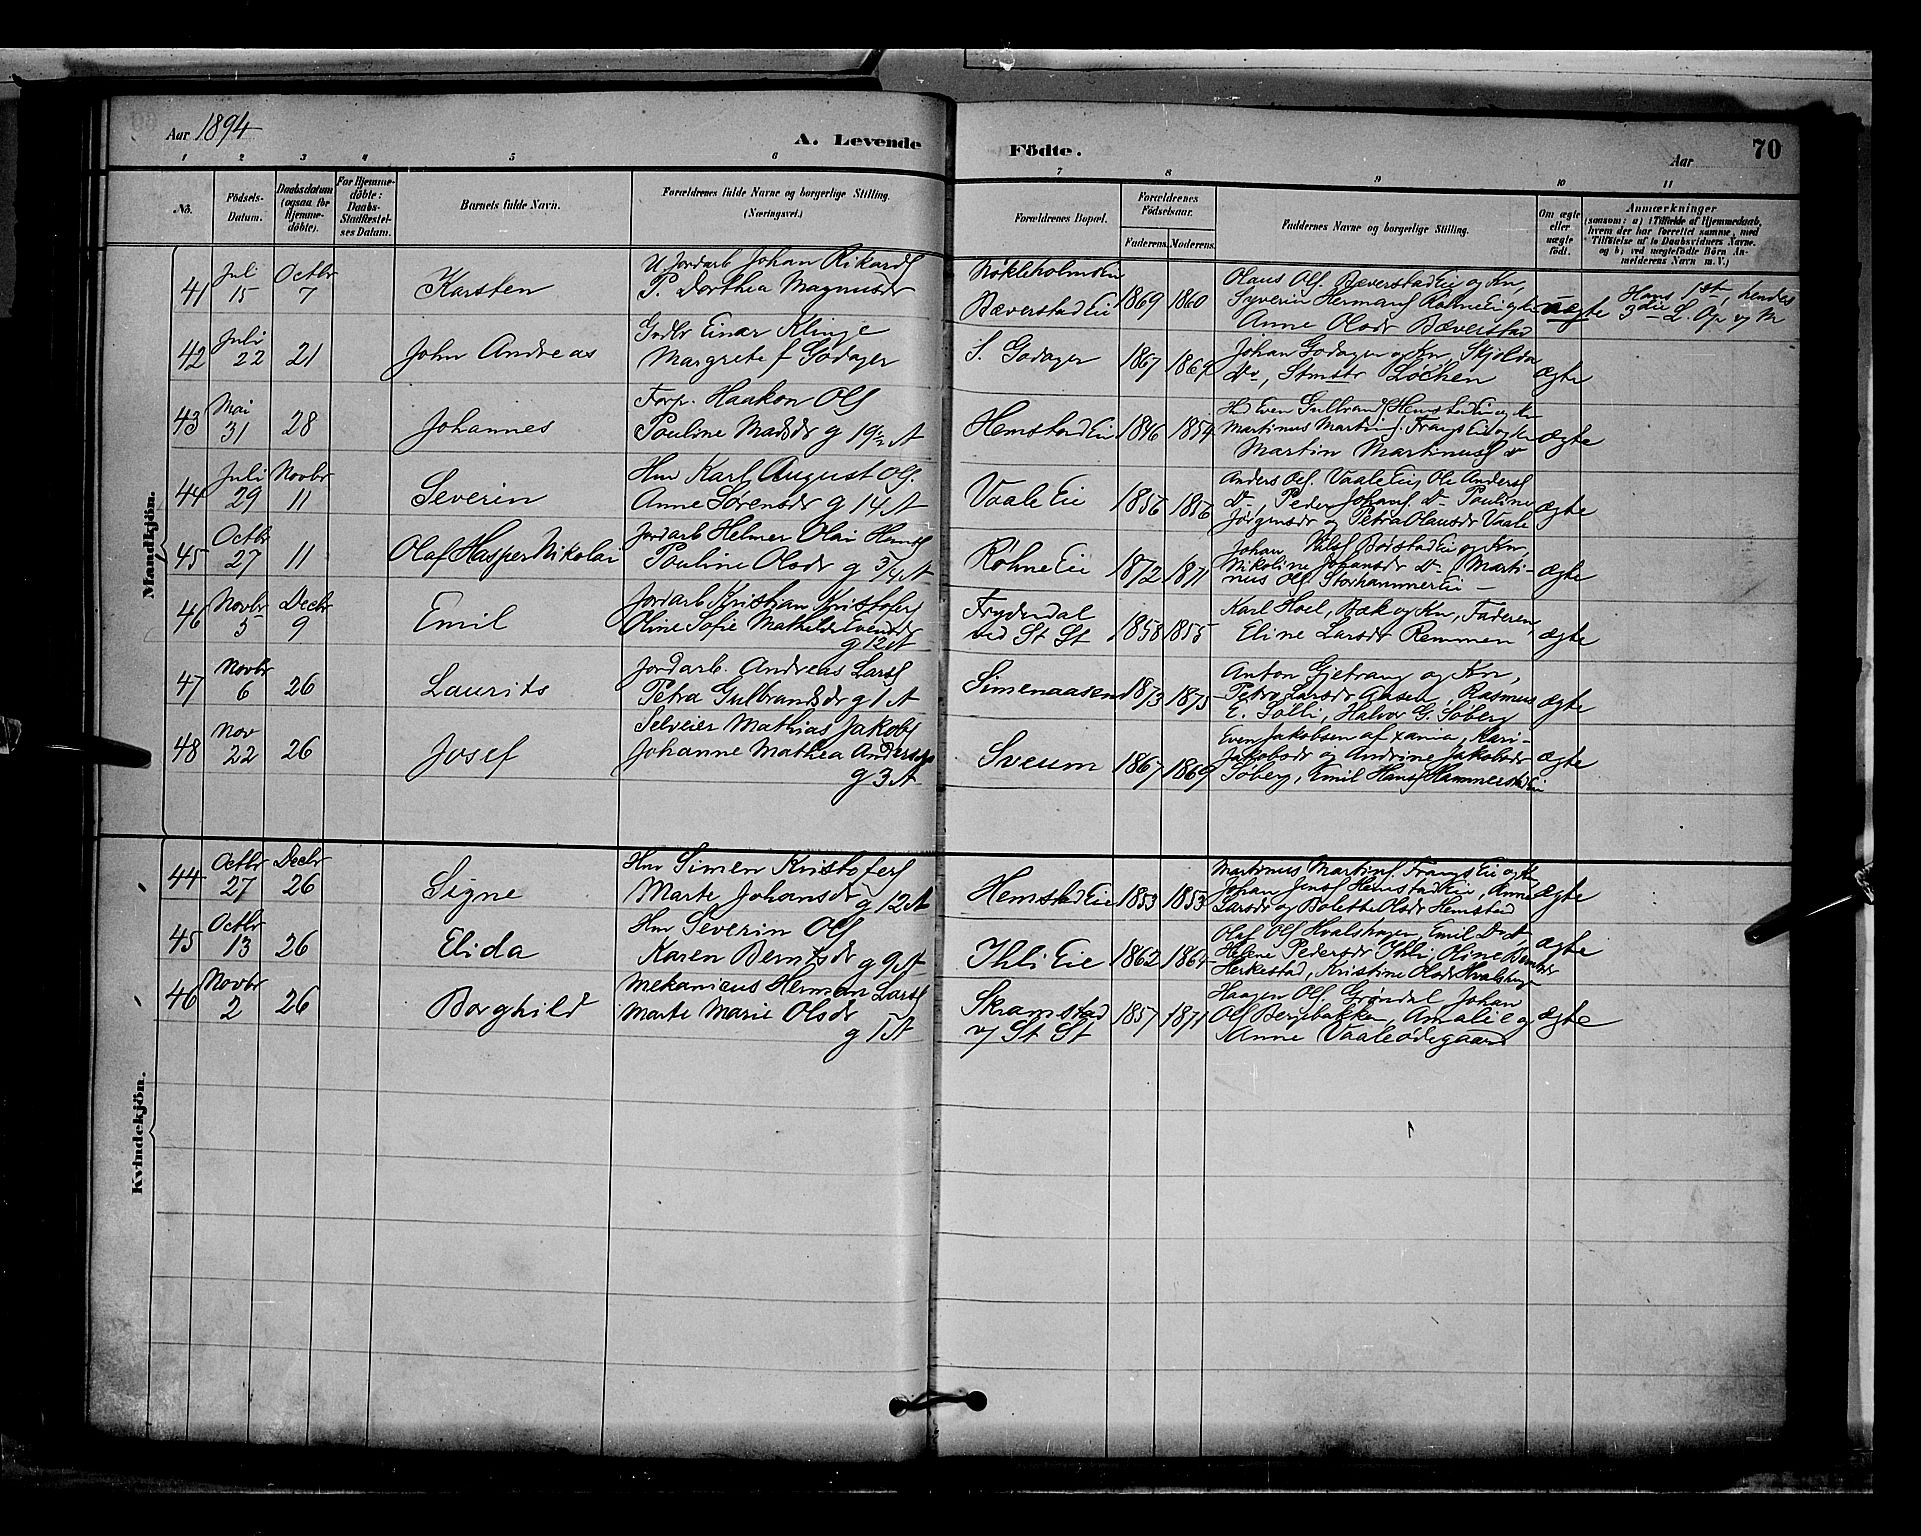 Aar 1894
A. Levende
Födte.
Aar
70
1 2 3 4 5 6 7 8 9 10 11
No.
Födsels-Datum.
Daabsdatum (ogsaa for Hjemme-döbte).
For Hjemme-döbte: Daabs-Stadfæstel-ses Datum.
Barnets fulde Navn.
Forældrenes fulde Navne og borgerlige Stilling. (Næringsvei.)
Forældrenes Bopæl.
Forældrenes Födselsaar.
Faderens. Moderens.
Faddernes Navne og borgerlige Stilling.
Om ægte eller uægte födt.
Anmærkninger
(saasom: a) i Tilfælde af Hjemmedaab, hvem der har forrettet samme, med Tilföielse af to Daabsvidners Navne, og b) ved uægtefödte Börn An-melderens Navn m. V.)
Mandkjön.
41 Juli 15 Octbr 7 Karsten
U Jordarb Johan Rikards
P. Dorthea Magnusdr
Bæverstad Eie 1869 1860
Olaus Ols. Bæverstad Eie og Kn,
Syverin Hermans
Anne Olsdr Bæverstad
uægte
Hans 1st, hendes
3die L. Op v M
42 Juli 22 21 John Andreas
Gndbr Einar Klinge
Margrete f Godager
S. Godager 1867 1869
Johan Godager og Kn, Skjolden
Do, Løchen
ægte
43 Mai 31 28 Johannes
Forp. Haakon Ols
Pauline Madsdr g 19½ A
Hemstad Eie 1846 1854
Even Gulbrands Hemstad Eie og Kn
Martinus Martins. Frangs Eie og Kn
Martin Martinus Do
ægte
44 Juli 29 Novbr 11 Severin
Hm Karl August Ols.
Anne Sørensdr g 14 A
Vaale Eie 1856 1856
Anders Ols. Vaale Eie, Ole Anders
Do, Peder Johans Do Pauline
Jørgensdr og Petra Olausdr Vaale
ægte
45 Octbr 27 11 Olaf Hasper Nikolai
Jordarb Helmer Olai Hans
Pauline Olsdr g ¾ A
Røhne Eie 1872 1871
Johan Nils Børstad Eie og Kn,
Nikoline Johansdr Do, Marti-
nus Ols. Storhammer Eie
ægte
46 Novbr 5 Decbr 9 Emil
Jordarb Kristian Kristofers
Oline Sofie Mathilde Evensdr
g 12 A
Frydendal
ved St St 1858 1855
Karl Hoel, Bæk og Kn, Faderen,
Eline Larsdr Remmen
ægte
47 Novbr 6 26 Laurits
Jordarb. Andreas Lars
Petra Gulbrandsdr g 1 A
Simenaasen 1873 1875
Anton Gjetvang og Kn,
Petra Larsdr Aasen, Rasmus
E. Sølli, Halvor G. Søberg
ægte
48 Nov 22 26 Josef
Selveier Mathias Jakobs
Johanne Mathea Andersdr
g 3 A
Sveum 1867 1869
Even Jakobsen af Xania, Kari
Jakobsdr og Andrine Jakobsdr
Søberg, Emil Hans Hammerstad Eie
ægte
Kvindekjön.
44 Octbr 27 Decbr 26 Signe
Hm Simen Kristofers
Marte Johansdr g 12 A
Hemstad Eie 1853 1853
Martinus Martins. Frangs Eie og Kn,
Johan Jens Hemstad Eie, Anne
Larsdr og Bolette Olsdr Hemstad
ægte
45 Octbr 13 26 Elida
Hm Severin Ols
Karen Berntsdr g 9 A
Ihli Eie 1862 1864
Olaf Ols Hvalshagen, Emil Do Do,
Helene Pedersdr Ihli, Oline
Herkestad, Kristine Olsdr Hvalshagen
ægte
46 Novbr 2 26 Borghild
Mekanicus Herman Lars
Marte Marie Olsdr
g 1 A
Skramstad
v/ St St 1857 1871
Haagen Ols. Grøndal, Johan
Ols Bergbakken, Amalie og
Anne Vaaleødegaard
ægte